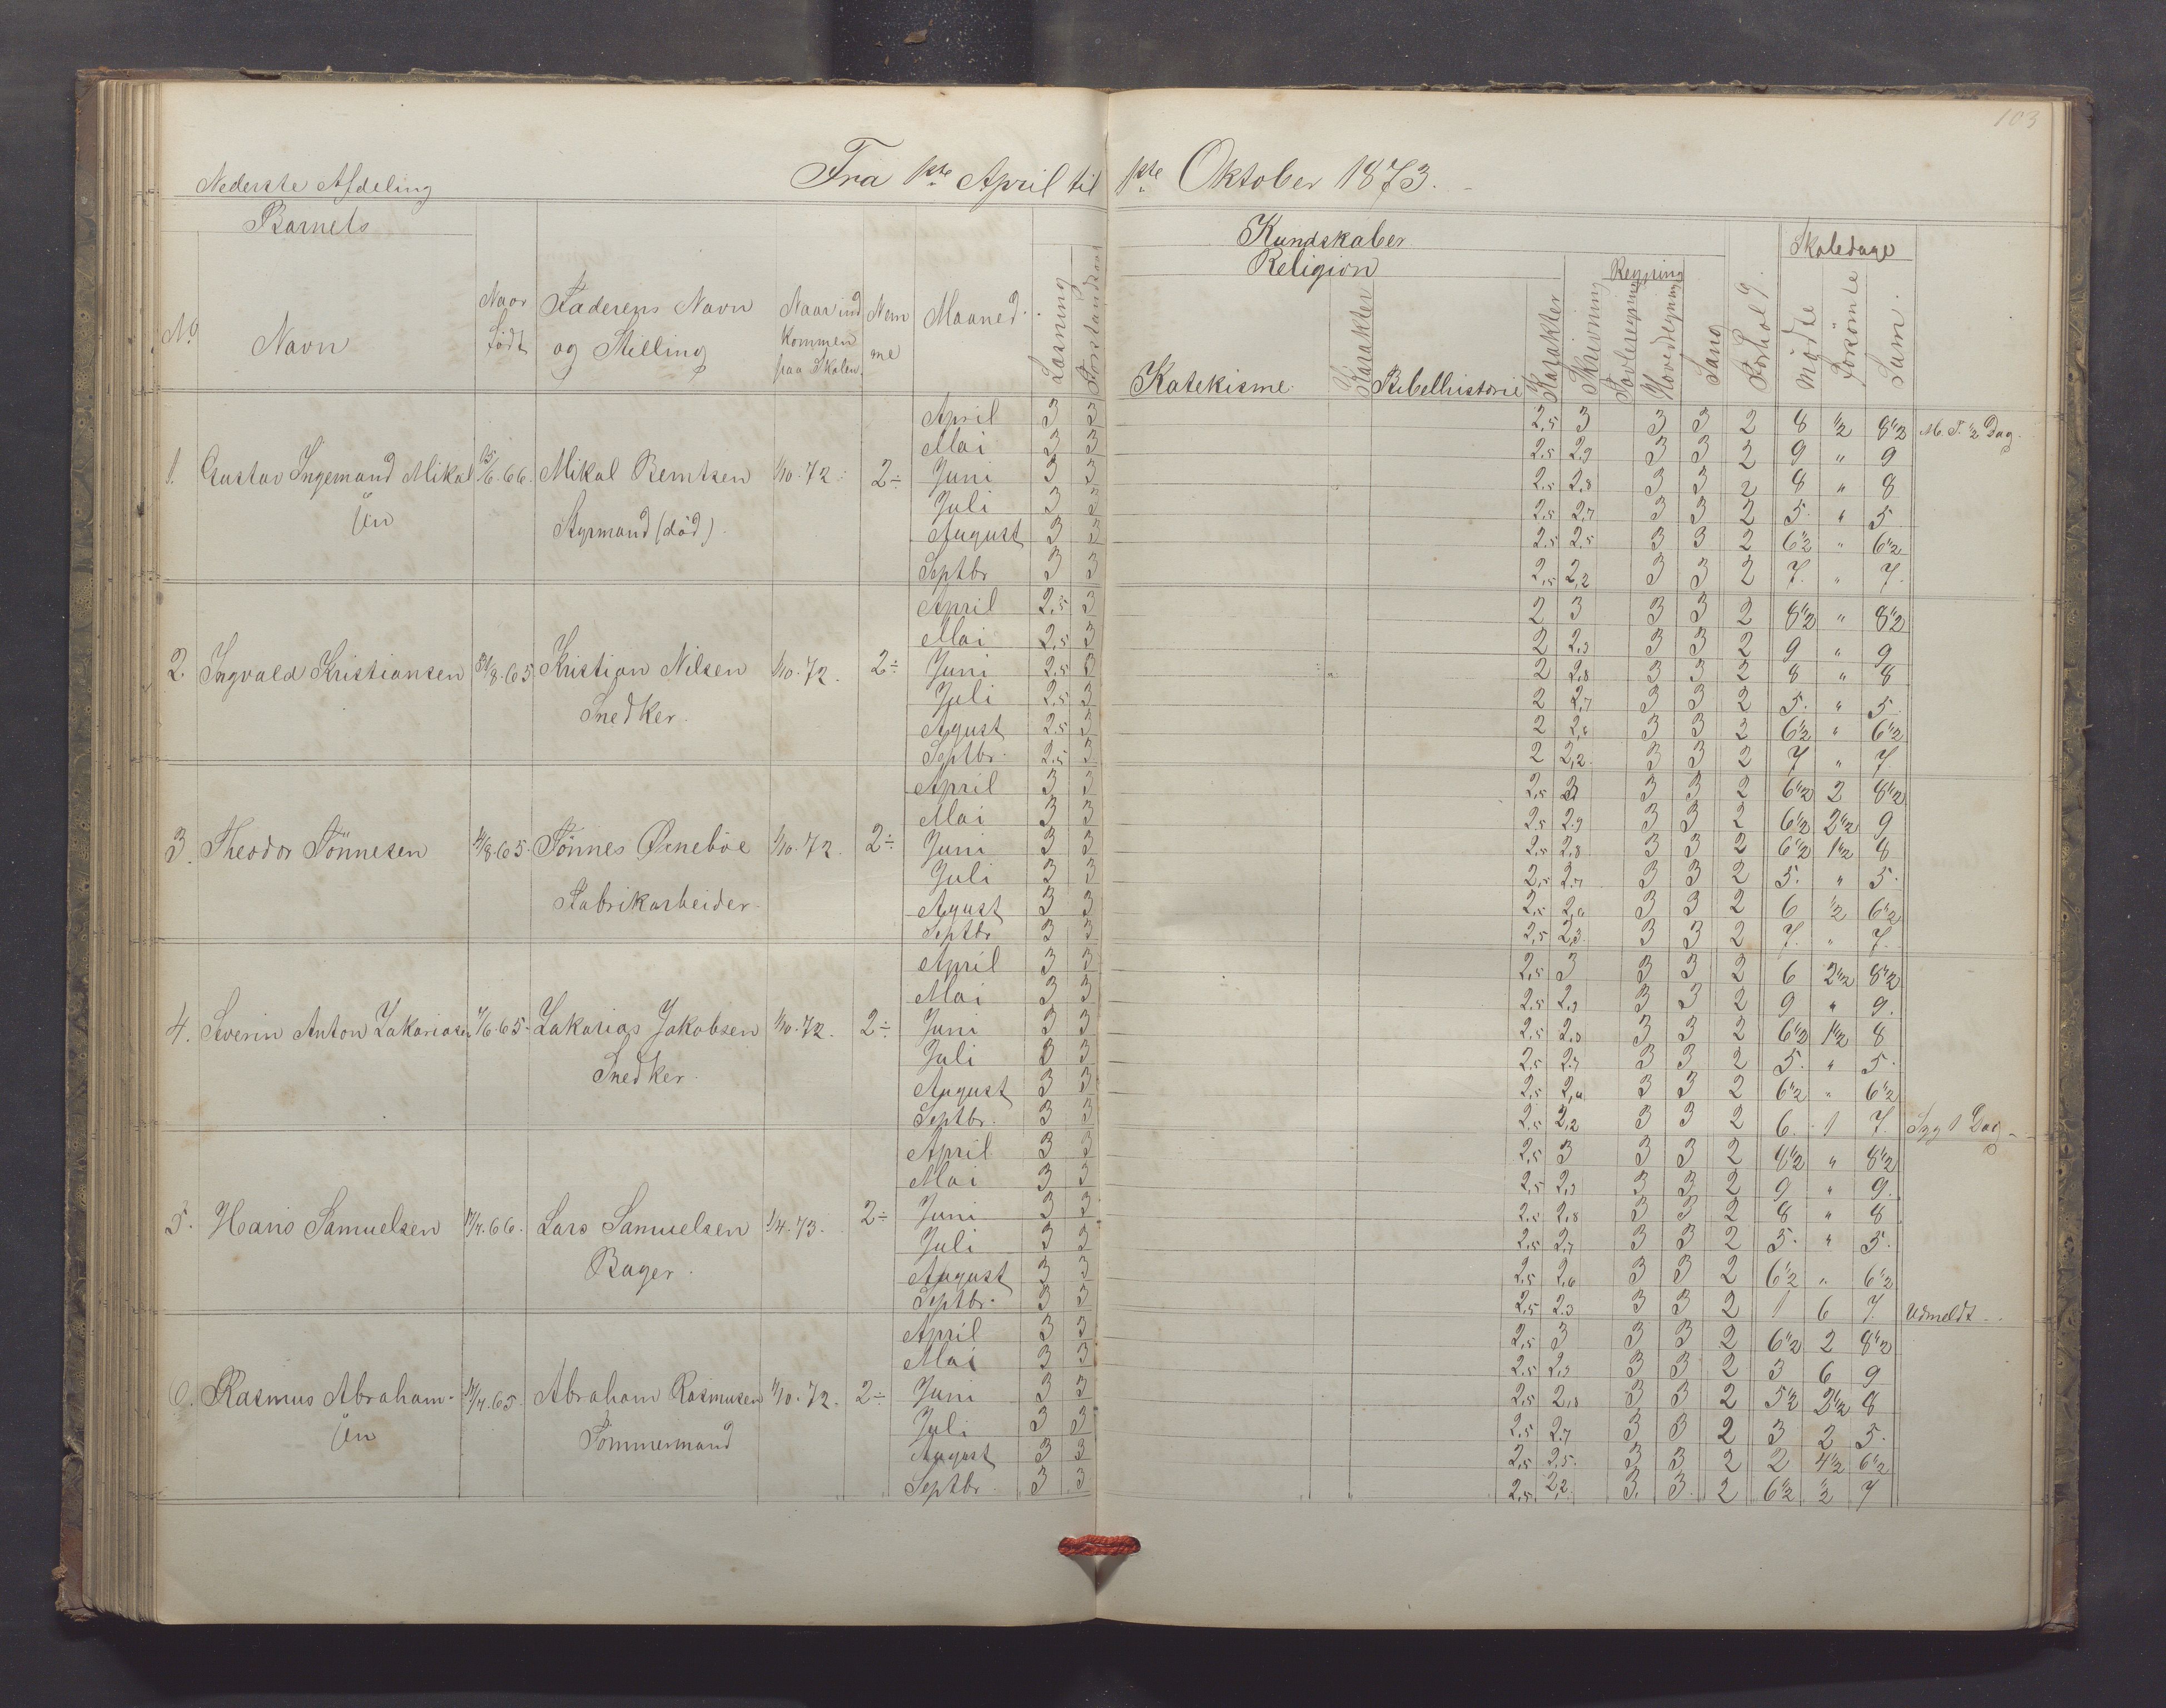 103
Nederste Afdeling
Fra 1ste April til 1ste Oktober 1873.
Barnets
Kundskaber
Skoledage
Religion
Regning
No
Navn
Naar Født
Faderens Navn og Stilling
Naar ind kommen paa Skolen.
Nemme
Maaned.
Læsning
Forstandsøv
Katekisme
Karakter
Bibelhistorie
Karakter
Skrivning
Tavleregning
Hovedregning
Sang
Forhold
Mødte
Forsømte
Sum.
April 3 3 2,5 3 3 3 2 8 1/2 8 1/2 M. T. 1/2 Dag.
Mai 3 3 2,5 2,9 3 3 2 9 " 9
1. Gustav Ingemand Mikal 15/6.66. Mikal Berntsen 1/10.72. 2÷ Juni 3 3 2,5 2,8 3 3 2 8 " 8
Juli 3 3 2,5 2,7 3 3 2 5. " 5
sen Styrmand (død). August 3 3 2,5 2,5 3 3 2 6 1/2 " 6 1/2
Septbr 3 3 2,5 2,2 3 3 2 7. " 7.
April 2,5 3 2 3 3 3 2 8 1/2 " 8 1/2
Mai 2,5 3 2 2,9 3 3 2 9 " 9
2. Ingvald Kristiansen 31/8.65 Kristian Nilsen 1/10.72. 2÷ Juni 2,5 3 2 2,8 3 3 2 8 " 8
Juli 2,5 3 2 2,7 3 3 2 5. " 5.
Snedker. Agust 2,5 3 2 3 3 2 6 1/2 " 6 1/2
Septbr. 2,5 3 2 2,2 3 3 2 7 " 7.
April 3 3 2,5 3 3 3 2 6 1/2 2 8 1/2
Mai 3 3 2,5 2,9 3 3 2 6 1/2 2 1/2 9
3. Theodor Tönnesen /8.65. Tönnes Ørneböe 1/10.72. 2÷ Juni 3 3 2,5 2,8 3 3 2 6 1/2 1 1/2 8
Juli 3 3 2,5 2,7 3 3 2 5. " 5.
Fabrikarbeider Agust 3 3 2,5 3 3 2 6 1/2 6 1/2
Septbr 3 3 2,5 2,3 3 3 2 7. " 7.
April 3 3 2,5 3 3 3 2 6 2 1/2 8 1/2
Mai 3 3 2,5 2,9 3 3 2 9 " 9.
4. Severin Anton Zakariasen /6.65. Zakarias Jakobsen 1/10.72. 2÷ Juni 3 3 2,5 2,8 3 3 2 6 1/2 1 1/2 8
Juli 3 3 2,5 2,7 3 3 2 5. " 5.
Snedker. August 3 3 2,5 3 3 2 6 1/2 " 6 1/2
Septbr. 3 3 2,5 2,2 3 3 2 6. 1 7. Syg 1 Dag
April 3 3 2,5 3 3 3 2 8 1/2 " 8 1/2
Mai 3 3 2,5 2,9 3 3 2 9 " 9.
5. Hans Samuelsen /4.66. Lars Samuelsen 1/4.73. 2÷ Juni 3 3 2,5 2,8 3 3 2 8 " 8
Juli 3 3 2,5 2,7 3 3 2 5. " 5.
Bager. August 3 3 2,5 3 3 2 6 1/2 " 6 1/2
Septbr. 3 3 2,5 2,3 3 3 2 1 6 7. Udmeldt.
April 3 3 2,5 3 3 3 2 6 1/2 2 8 1/2
Mai 3 3 2,5 2,9 3 3 2 3 6 9
6. Rasmus Abraham- /4.65. Abraham Rasmusen 1/10.72. 2÷ Juni 3 3 2,5 2,8 3 3 2 5 1/2 2 1/2 8
sen Tömmermand Juli 3 3 2,5 2,7 3 3 2 3 2 5.
August 3 3 2,5 2,5. 3 3 2 2 4 1/2 6 1/2
Septbr. 3 3 2,5 2,2 3. 3. 2 6 1/2 1/2 7